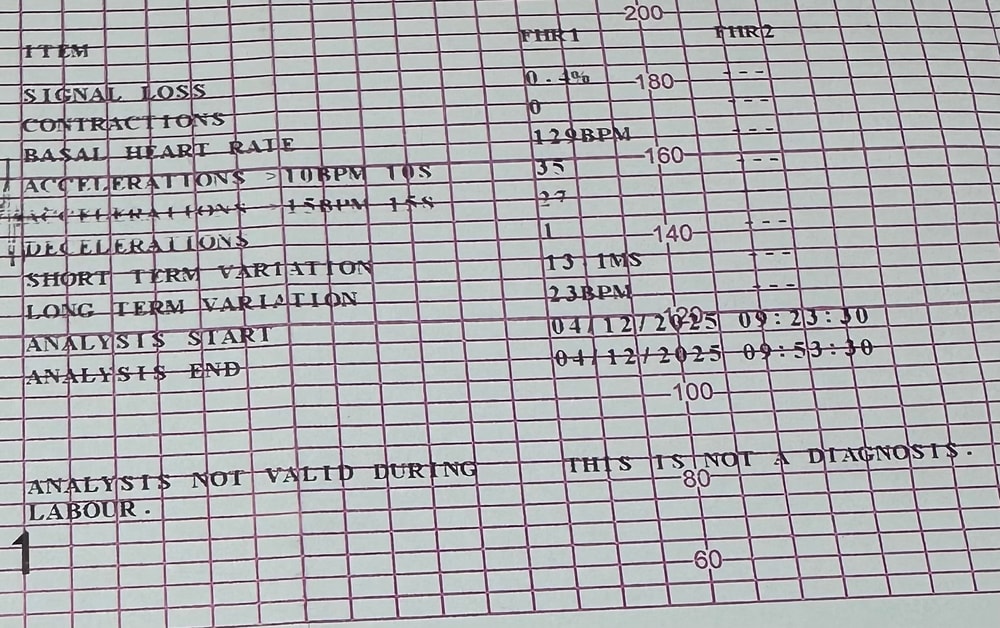 200
ITEM FHR1 FHR2
SIGNAL LOSS 0.4% 180 ---
CONTRACTIONS 0 ---
BASAL HEART RATE 129BPM
ACCELERATIONS >10BPM 10S 35 160 ---
ACCELERATIONS >15BPM 15S 27
DECELERATIONS 1 140 ---
SHORT TERM VARIATION 13.1MS ---
LONG TERM VARIATION 23BPM ---
120
ANALYSIS START 04/12/2025 09:23:30
ANALYSIS END 04/12/2025 09:53:30
100
ANALYSIS NOT VALID DURING THIS IS NOT A DIAGNOSIS.
LABOUR. 80
1
60